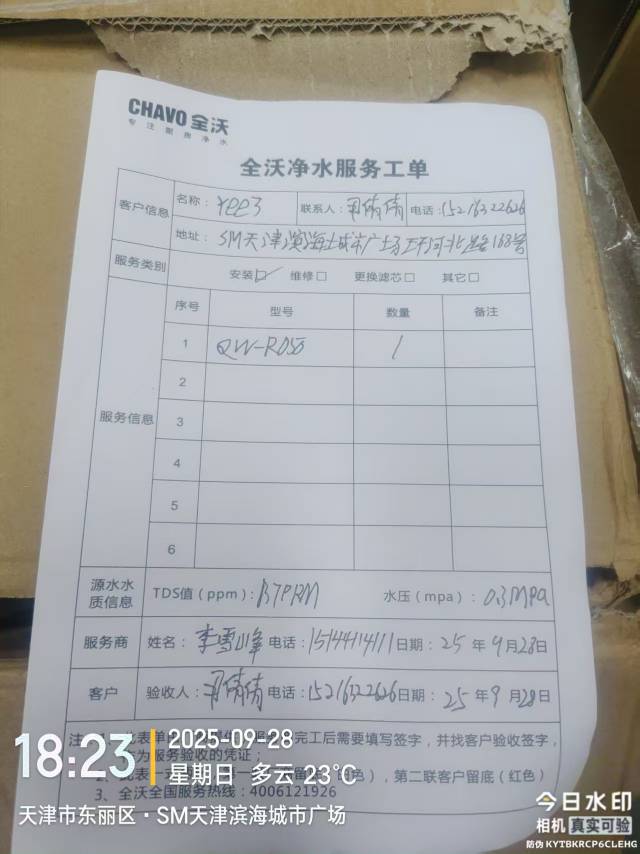 CHAVO 全沃
专注厨房净水
全沃净水服务工单
客户信息 名称： yee3 联系人： 倩倩 电话： 15216322626
地址： SM天津滨海城市广场 环河北路168号
服务类别 安装☑ 维修□ 更换滤芯□ 其它□
服务信息 序号 型号 数量 备注
1 QW-R050 1
2
3
4
5
6
源水水质信息 TDS值（ppm）： 137PRM 水压（mpa）： 0.3MPa
服务商 姓名： 李雪峰 电话： 15144114111 日期： 25 年 9 月 28 日
客户 验收人： 倩倩 电话： 15216322626 日期： 25 年 9 月 28 日
注 1、 表单 完工后需要填写签字，并找客户验收签字，
为服务验收的凭证；
2、 表 一 白色），第二联客户留底（红色）
3、全沃全国服务热线：4006121926
18:23
2025-09-28
星期日 多云 23℃
天津市东丽区·SM天津滨海城市广场
今日水印
相机 真实可验
防伪 KYTBKRCP6CLEHG